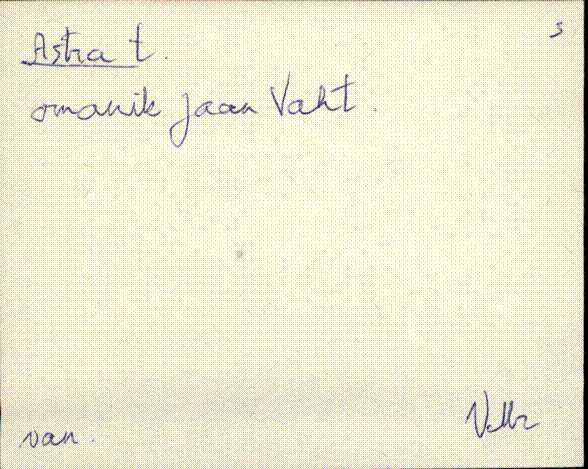 s
Astra t.
omanik Jaan Vaht.
van.